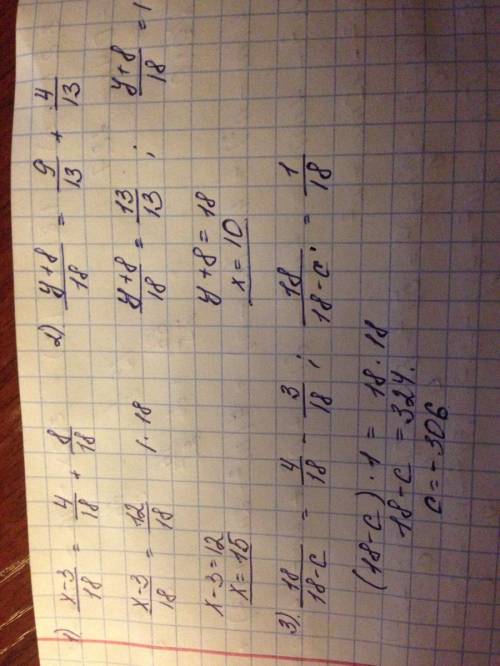 1) (x-3)/18 = 4/18 + 8/18
(x-3)/18 = 12/18 | · 18
x-3=12
x=15
2) (y+8)/18 = 9/13 + 4/13
(y+8)/18 = 13/13 ; (y+8)/18 = 1
y+8=18
x=10
3) 18/(18-c) = 4/18 - 3/18 ; 18/(18-c) = 1/18
(18-c)·1 = 18·18
18-c = 324.
c=-306